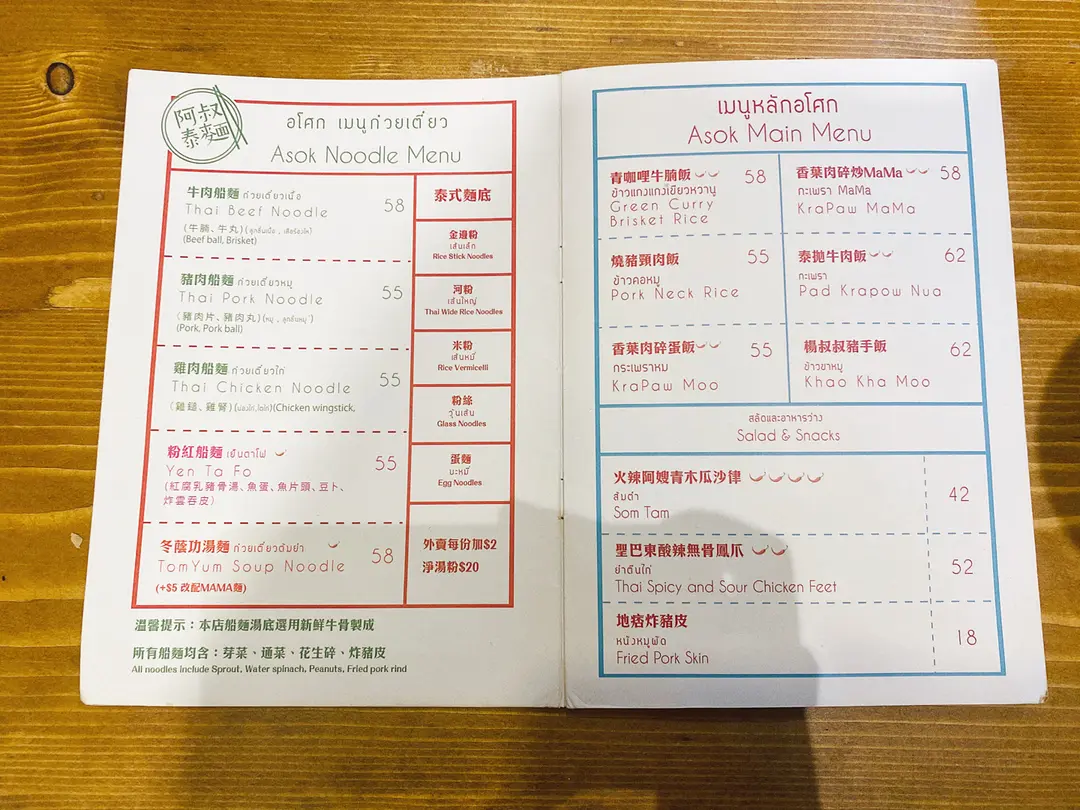 阿叔
泰麵
อโศก เมนูก๋วยเตี๋ยว
Asok Noodle Menu
牛肉船麵 ก๋วยเตี๋ยวเนื้อ
Thai Beef Noodle 58
(牛腩、牛丸)
(Beef ball, Brisket)
豬肉船麵 ก๋วยเตี๋ยวหมู
Thai Pork Noodle 55
(豬肉片、豬肉丸)
(Pork, Pork ball)
雞肉船麵 ก๋วยเตี๋ยวไก่
Thai Chicken Noodle 55
(雞鎚、雞腎) (Chicken wingstick,
粉紅船麵 เย็นตาโฟ
Yen Ta Fo 55
(紅腐乳豬骨湯、魚蛋、魚片頭、豆卜、
炸雲吞皮)
冬蔭功湯麵 ก๋วยเตี๋ยวต้มยำ
TomYum Soup Noodle 58
(+$5 改配MAMA麵)
泰式麵底
金邊粉
เส้นเล็ก
Rice Stick Noodles
河粉
เส้นใหญ่
Thai Wide Rice Noodles
米粉
เส้นหมี่
Rice Vermicelli
粉絲
วุ้นเส้น
Glass Noodles
蛋麵
บะหมี่
Egg Noodles
外賣每份加$2
淨湯粉$20
溫馨提示：本店船麵湯底選用新鮮牛骨製成
所有船麵均含：芽菜、通菜、花生碎、炸豬皮
All noodles include Sprout, Water spinach, Peanuts, Fried pork rind
เมนูหลักอโศก
Asok Main Menu
青咖哩牛腩飯 58
ข้าวแกงแกงเขียวหวานู
Green Curry
Brisket Rice
燒豬頸肉飯 55
ข้าวคอหมู
Pork Neck Rice
香葉肉碎蛋飯 55
กระเพราหม
KraPaw Moo
香葉肉碎炒MaMa 58
กะเพรา MaMa
KraPaw MaMa
泰拋牛肉飯 62
กะเพรา
Pad Krapow Nua
楊叔叔豬手飯 62
ข้าวขาหมู
Khao Kha Moo
สลัดและอาหารว่าง
Salad & Snacks
火辣阿嫂青木瓜沙律
ส้มตำ
Som Tam 42
聖巴東酸辣無骨鳳爪
ยำตีนไก่
Thai Spicy and Sour Chicken Feet 52
地痞炸豬皮
หนังหมูผัด
Fried Pork Skin 18